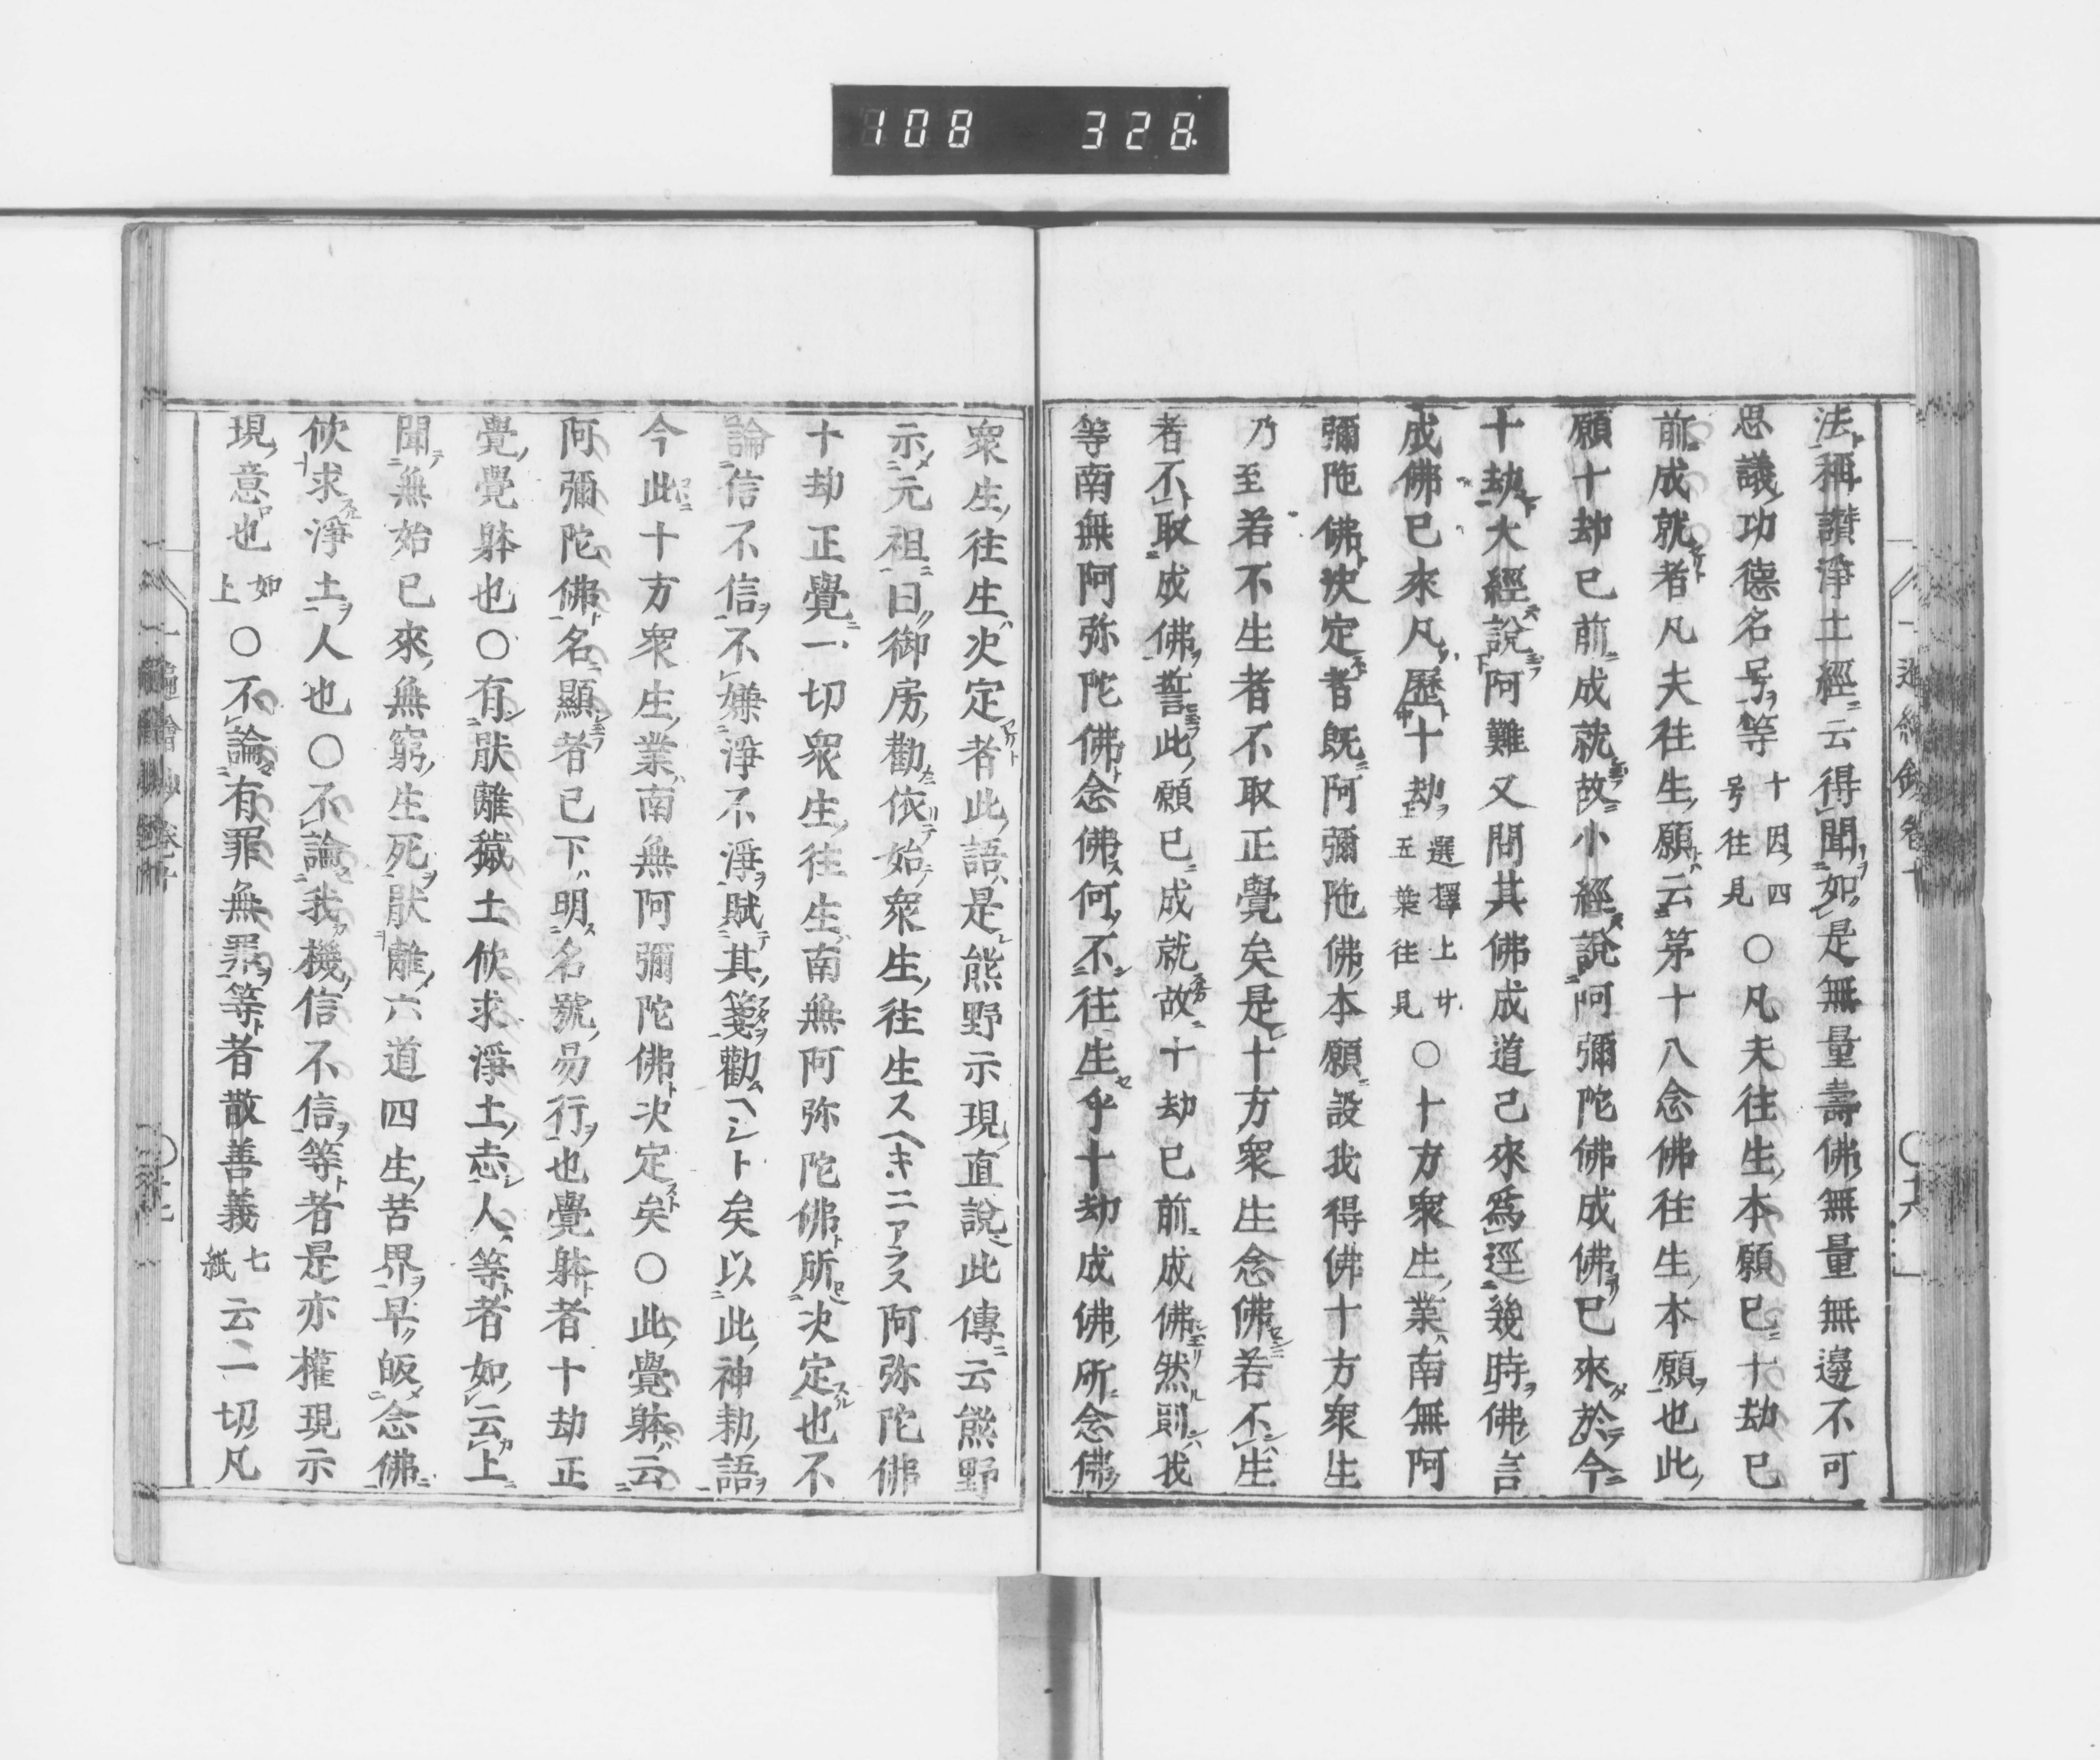 108 328
法稱讃淨土經云得聞如是無量壽佛無量無邊不可
思議功德名号等十因四号往見○凡夫往生本願已十劫已
前成就者凡夫往生願云第十八念佛往生本願也此
願十劫已前成就故小經說阿彌陀佛成佛已來於今
十劫大經說阿難又問其佛成道已來爲逕幾時佛言
成佛已來凡歷十劫選擇上廿五葉往見○十方衆生業南無阿
彌陁佛決定者既阿彌陁佛本願設我得佛十方衆生
乃至若不生者不取正覺矣是十方衆生念佛若不生
者不取成佛誓此願已成就故十劫已前成佛然則我
等南無阿弥陀佛念佛何不往生乎十劫成佛所念佛
衆生往生決定者此語是熊野示現直說此傳云熊野
示元祖曰御房勸依始衆生往生スヘキニアラス阿弥陀佛
十劫正覺一切衆生往生南無阿弥陀佛所決定也不
論信不信不嫌淨不淨賦其箋勸ヘシト矣以此神勅語
今此十方衆生業南無阿彌陀佛決定矣○此覺躰云
阿彌陀佛名顯者已下明名號易行也覺躰者十劫正
覺覺躰也○有猒離穢土欣求淨土志人等者如云上
聞無始已來無窮生死猒離六道四生苦界早皈念佛
欣求淨土人也○不論我機信不信等者是亦權現示
現意也如上○不論有罪無罪等者散善義七紙云一切凡